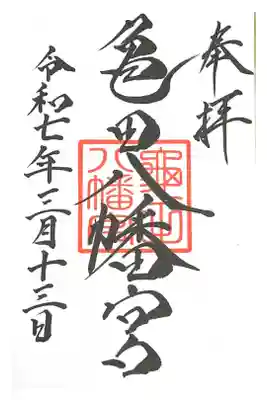 奉拝
亀田八幡宮
龜田八幡宮
令和七年三月十三日